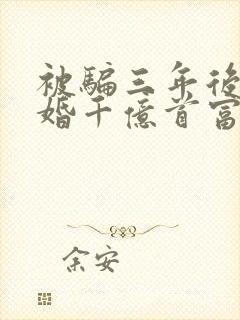 被騙三年後
婚千億首富
余安